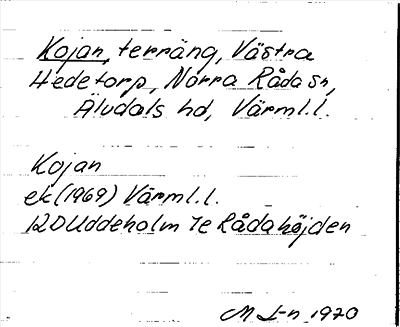 Kojan, terräng, Västra
Hedetorp, Norra Råda sn,
Äludals hd, Värml.l.
Kojan
ek (1969) Värml.l.
12D Uddeholm 7e Rådahöjden
M J-n 1970